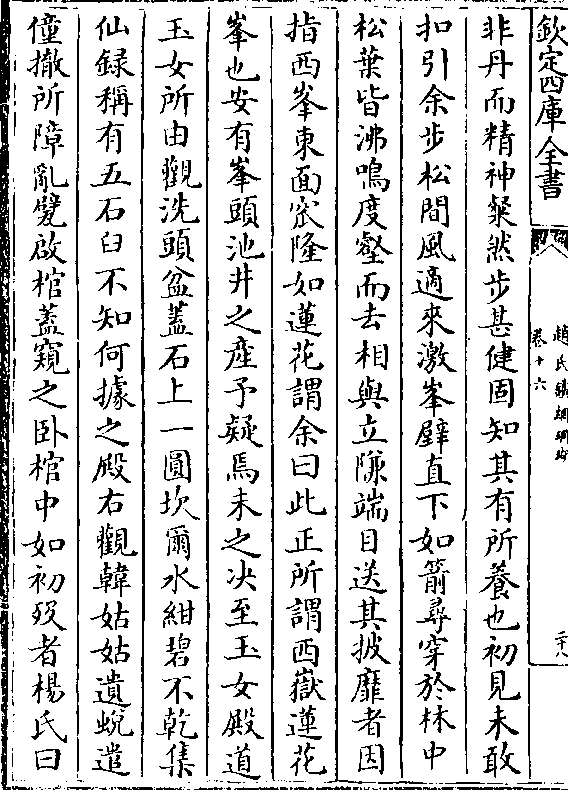 欽定四庫全書
趙氏鐵網珊瑚
卷十六
二十八
非丹而精神粲然步甚健固知其有所養也初見未敢
扣引余步松間風適來激峯壁直下如箭尋穿於林中
松葉皆沸鳴度壑而去相與立隒端目送其披靡者因
指西峯東面窊隆如蓮花謂余曰此正所謂西嶽蓮花
峯也安有峯頭池井之産予疑焉未之决至玉女殿道
玉女所由觀洗頭盆蓋石上一圓坎爾水紺碧不乾集
仙録稱有五石臼不知何據之殿右觀韓姑姑遺蛻遣
僮撤所障亂甓啟棺蓋窺之卧棺中如初殁者楊氏曰